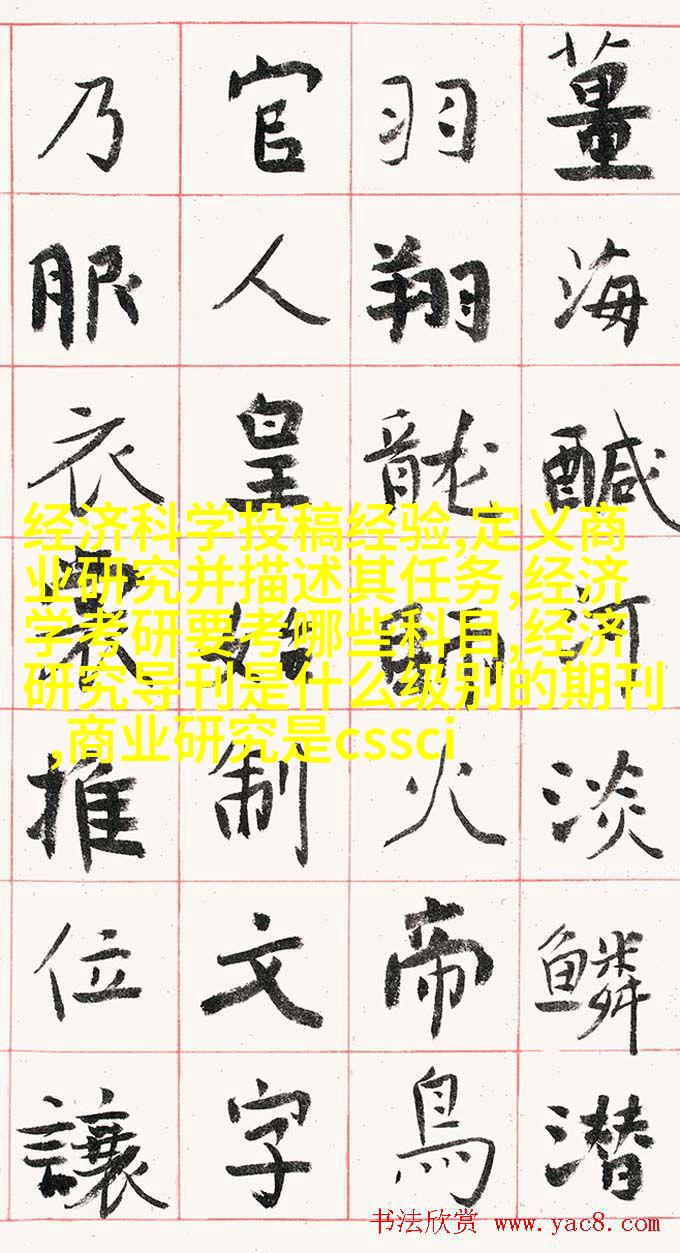 薑海醎河淡鳞潜
羽翔龍師火帝鳥
官人皇始制文字
乃服衣裳推位讓
经济科学投稿经验,定义商
业研究并描述其任务,经济
学考研要考哪些科目,经济
研究导刊是什么级别的期刊
,商业研究是cssci
书法欣赏 www.yac8.com